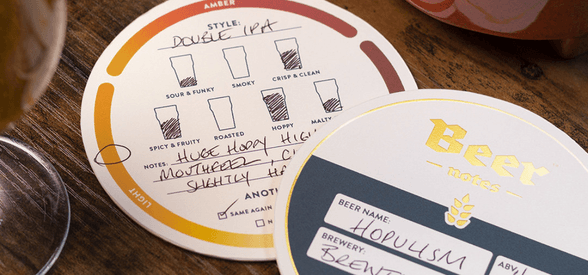 AMBER
STYLE:
DOUBLE IPA
SOUR & FUNKY
SMOKY
CRISP & CLEAN
SPICY & FRUITY
ROASTED
HOPPY
MALTY
NOTES: HUGE HOPPY HIGH
MOUTHFEEL,
SLIGHTLY
LIGHT
SAME AGAIN
Beer
notes
BEER NAME:
HOPULISM
BREWERY: